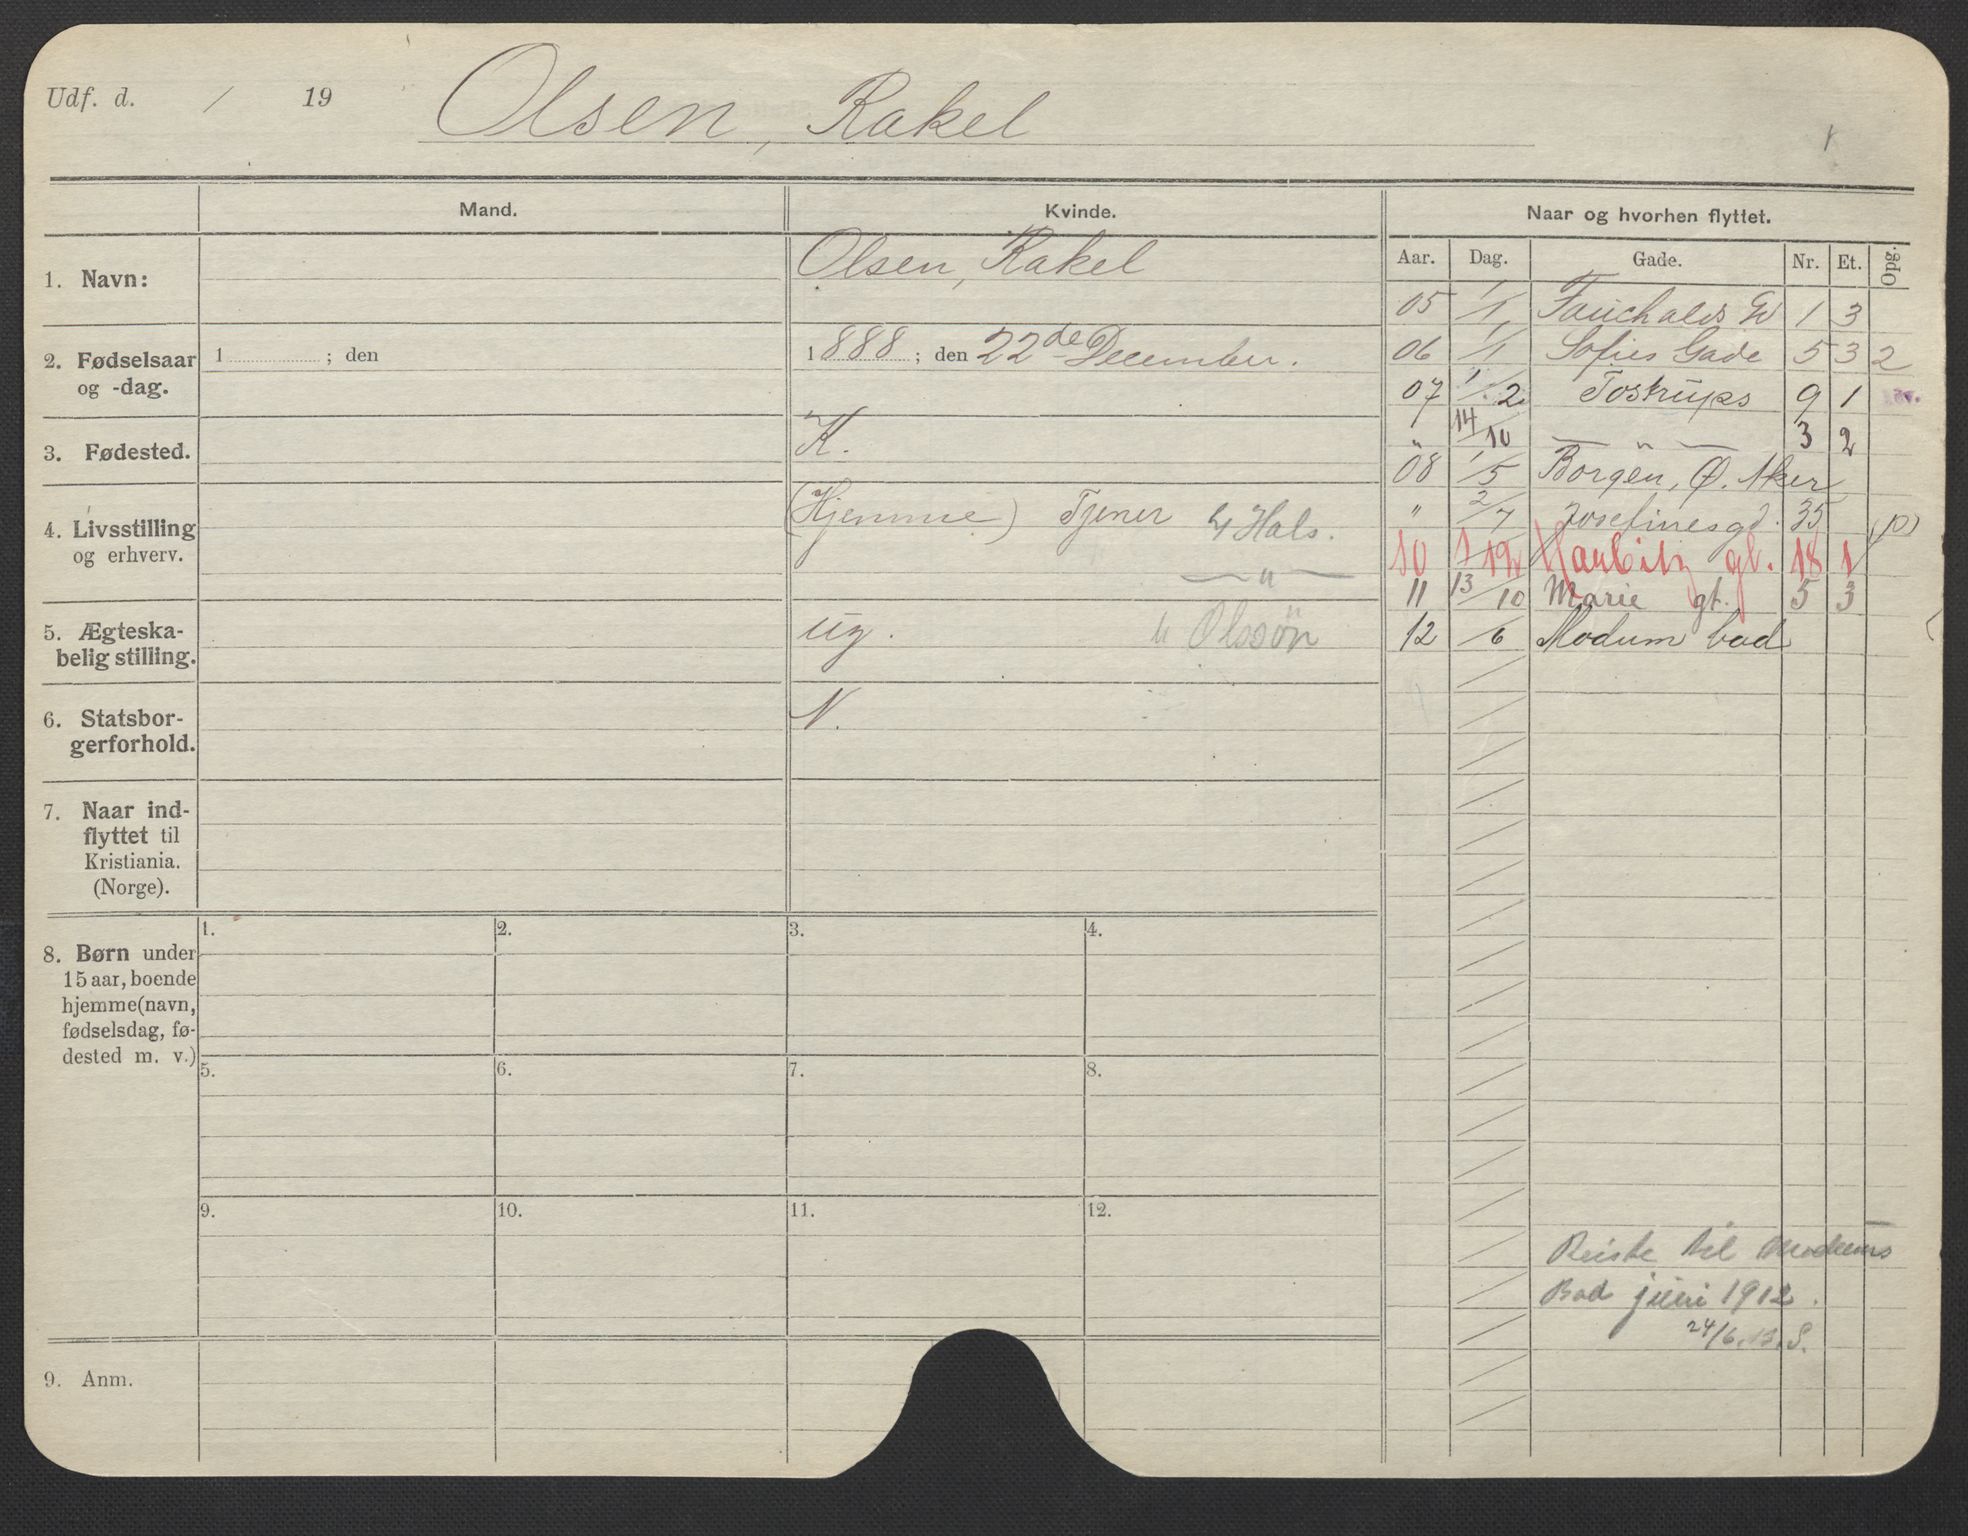 Udf. d. / 19 Olsen, Rakel
Mand. Kvinde. Naar og hvorhen flyttet.
Aar. Dag. Gade. Nr. Et. Opg.
1. Navn: Olsen, Rakel
2. Fødselsaar og -dag. 1 ; den 1888 ; den 22de December.
3. Fødested. K.
4. Livsstilling og erhverv. (Hjemme) Tjener h/ Hals.
— " —
5. Ægteska-
belig stilling. ug. h Olssön
6. Statsbor-
gerforhold. N.
7. Naar ind-
flyttet til
Kristiania.
(Norge).
8. Børn under
15 aar, boende
hjemme (navn,
fødselsdag, fø-
dested m. v.)
1. 2. 3. 4.
5. 6. 7. 8.
9. 10. 11. 12.
9. Anm.
05 1/1 Fauchalds G 1 3
06 1/1 Sofies Gade 5 3 2
07 1/2 Tostrups 9 1
" 14/10 — " — 3 2
08 1/5 Borgen, Ø. Aker
" 2/7 Josefinesgd. 35 (p)
10 1/12 Haubitz gt. 18 1
11 13/10 Marie gt. 5 3
12 /6 Modum bad
Reiste til Modums
Bad juni 1912.
24/6.13. S.